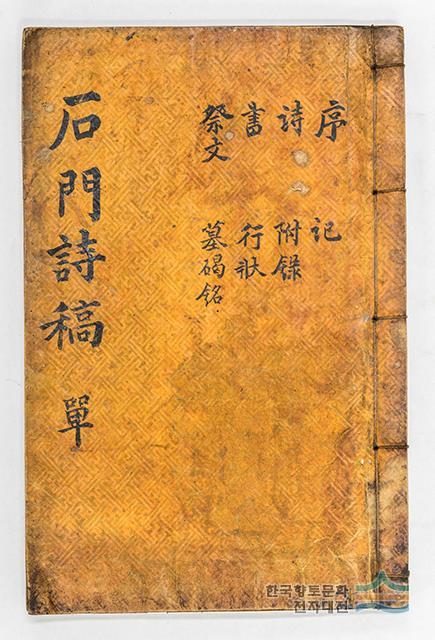 石門詩稿 單
序 記
詩 附錄
書 行狀
祭文 墓碣銘
한국향토문화
전자대전